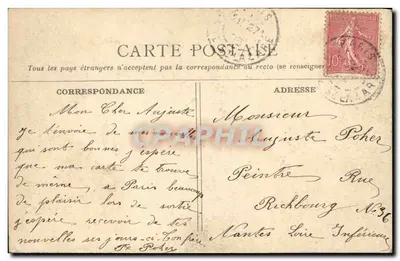 CARTE POSTALE
Tous les pays étrangers n'acceptent pas la correspondance au recto (se renseigner
CORRESPONDANCE
ADRESSE
Mon Cher Auguste
Je t'envoie de
qui sont bonnes j'espère
que ma carte te trouve
de même, a Paris beaucoup
de plaisir lors de
j'espère recevoir de tes
nouvelles ses jours-ci Ton frère
Poher
Monsieur
Auguste Poher
Peintre Rue
Richbourg No 36
Nantes Loire Inférieure
PARIS